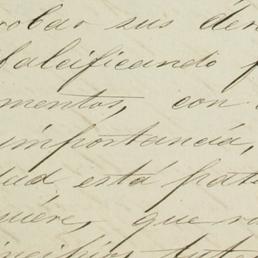 robar sus de
falcificando
mentos, con
importancia,
dad está pate
niére, que